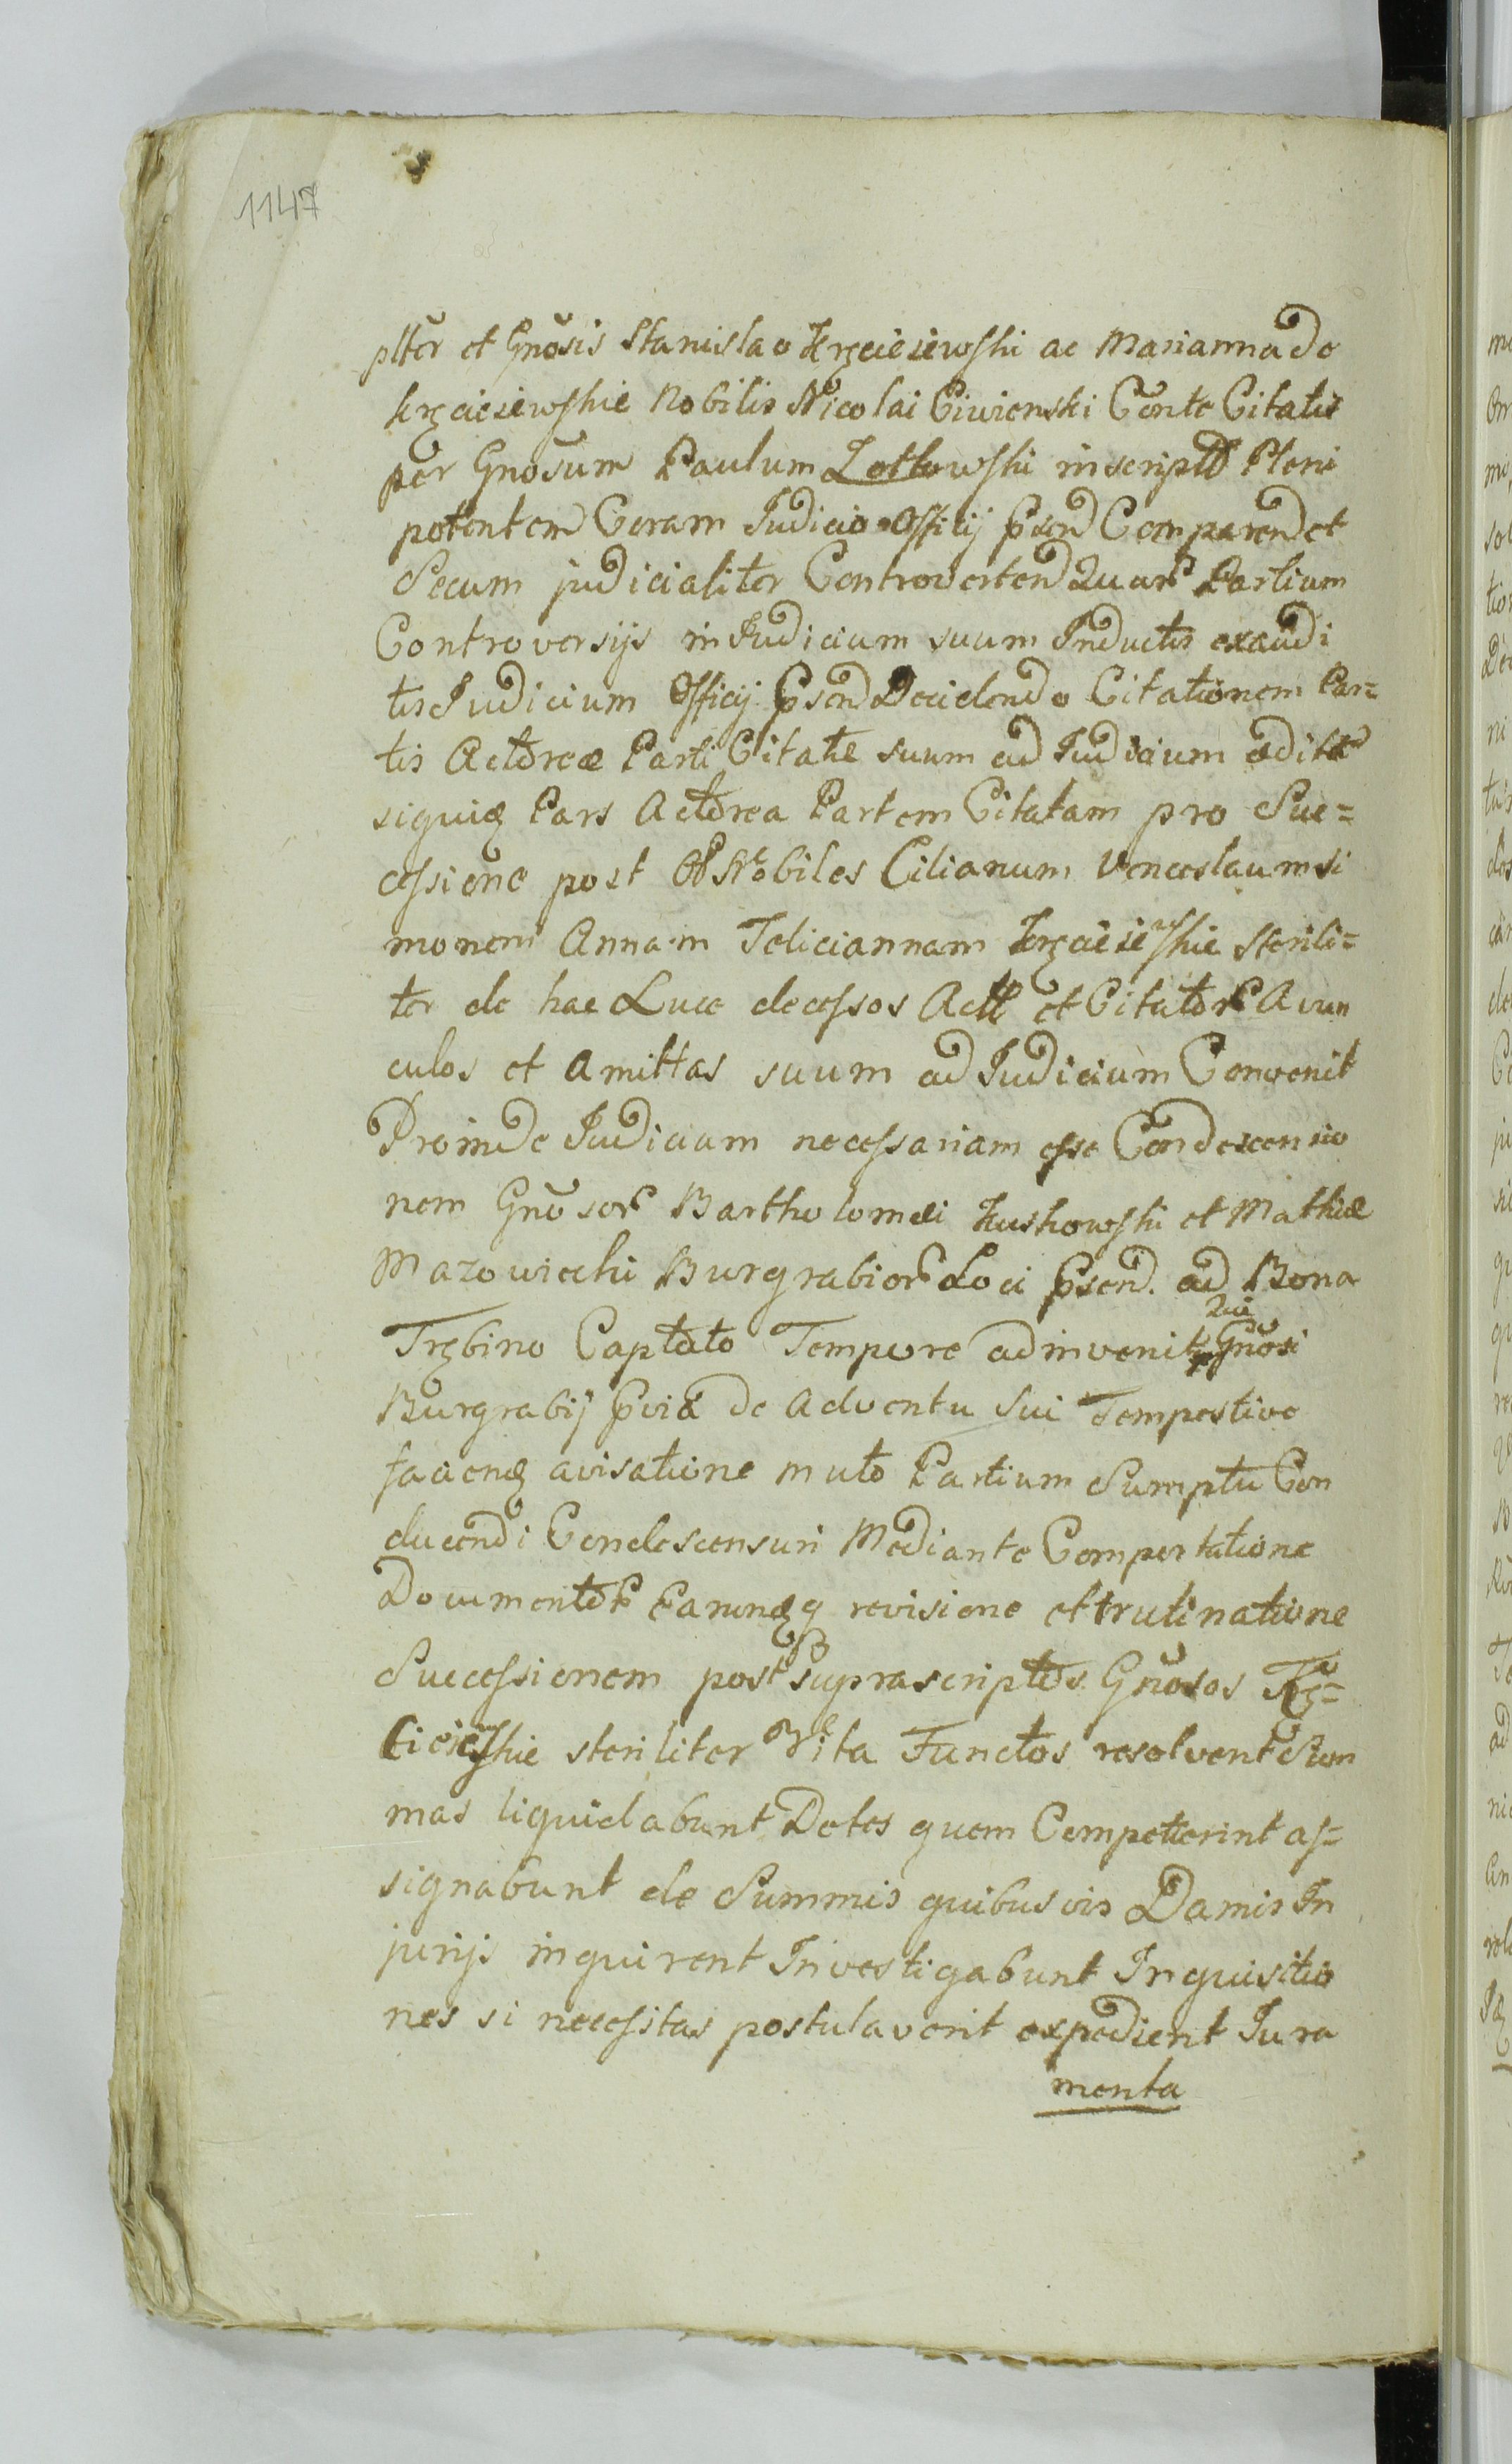 1147
plter et Gnosis Stanislao Krzciesiewski ac Marianna de
krzciesiewskie Nobilis Nicolai Ciwienski Conte Citatis
per Gnosum Paulum Lotkowski inscript Pleni
potentem Coram Judicio Officij Psen Comparen et
Secum judicialiter Controverten Quar Partium
Controversijs in Judicium suum Inductis exaudi
tis Judicium Officij Psen Decidendo Citationem Par=
tis Actorea Parti Citate suum ad Judicium edita
siquiq Pars Actorea Partem Citatam pro Suc=
cessione post Nobiles Cilianum Venceslaum Si
monem Annam Feliciannam Krzciesiewskie Sterili=
ter de hac Luce decessos Act et Citator Avun
culos et Amittas suum ad Judicium Convenit
Proinde Judicium necessariam esse Condescensio
nem Gnosor Bartholomei Kuskowski et Mathiæ
Mazowiecki Burgrabior Loci Psen. ad Bona
Trzbino Captato Tempore adinvenit Qui Gnosi
Burgrabij Pvia de Adventu sui Tempestive
facienq avisatione muto Partium Sumptu Con
ducendi Condescensuri Mediante Comportatione
Documentor Earunq revisione et trutinatione
Successionem post suprascriptos Gnosos Krz=
ciesiewskie steriliter Vita Functos resolvent Sum
mas liquidabunt Dotes quem Competierint as=
signabunt de Summis quibusvis Damis In
jurijs inquirent Investigabunt Inquisitio
nes si necessitas postulaverit expedient Jura
menta